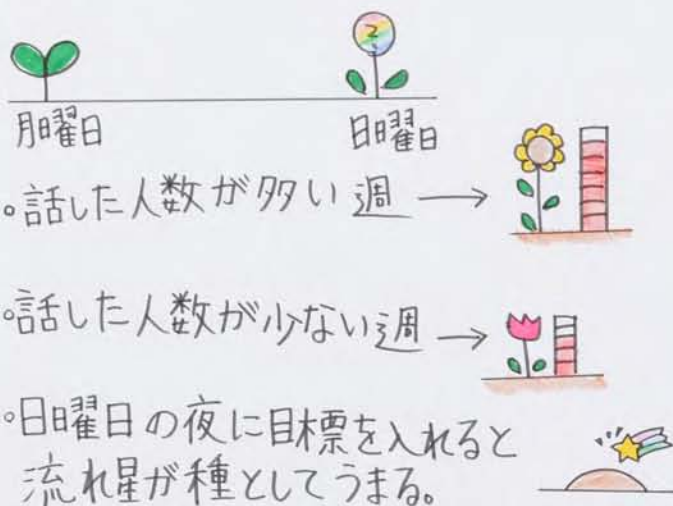 2
月曜日 日曜日
。話した人数が多い週 →
。話した人数が少ない週 →
。日曜日の夜に目標を入れると
流れ星が種としてうまる。